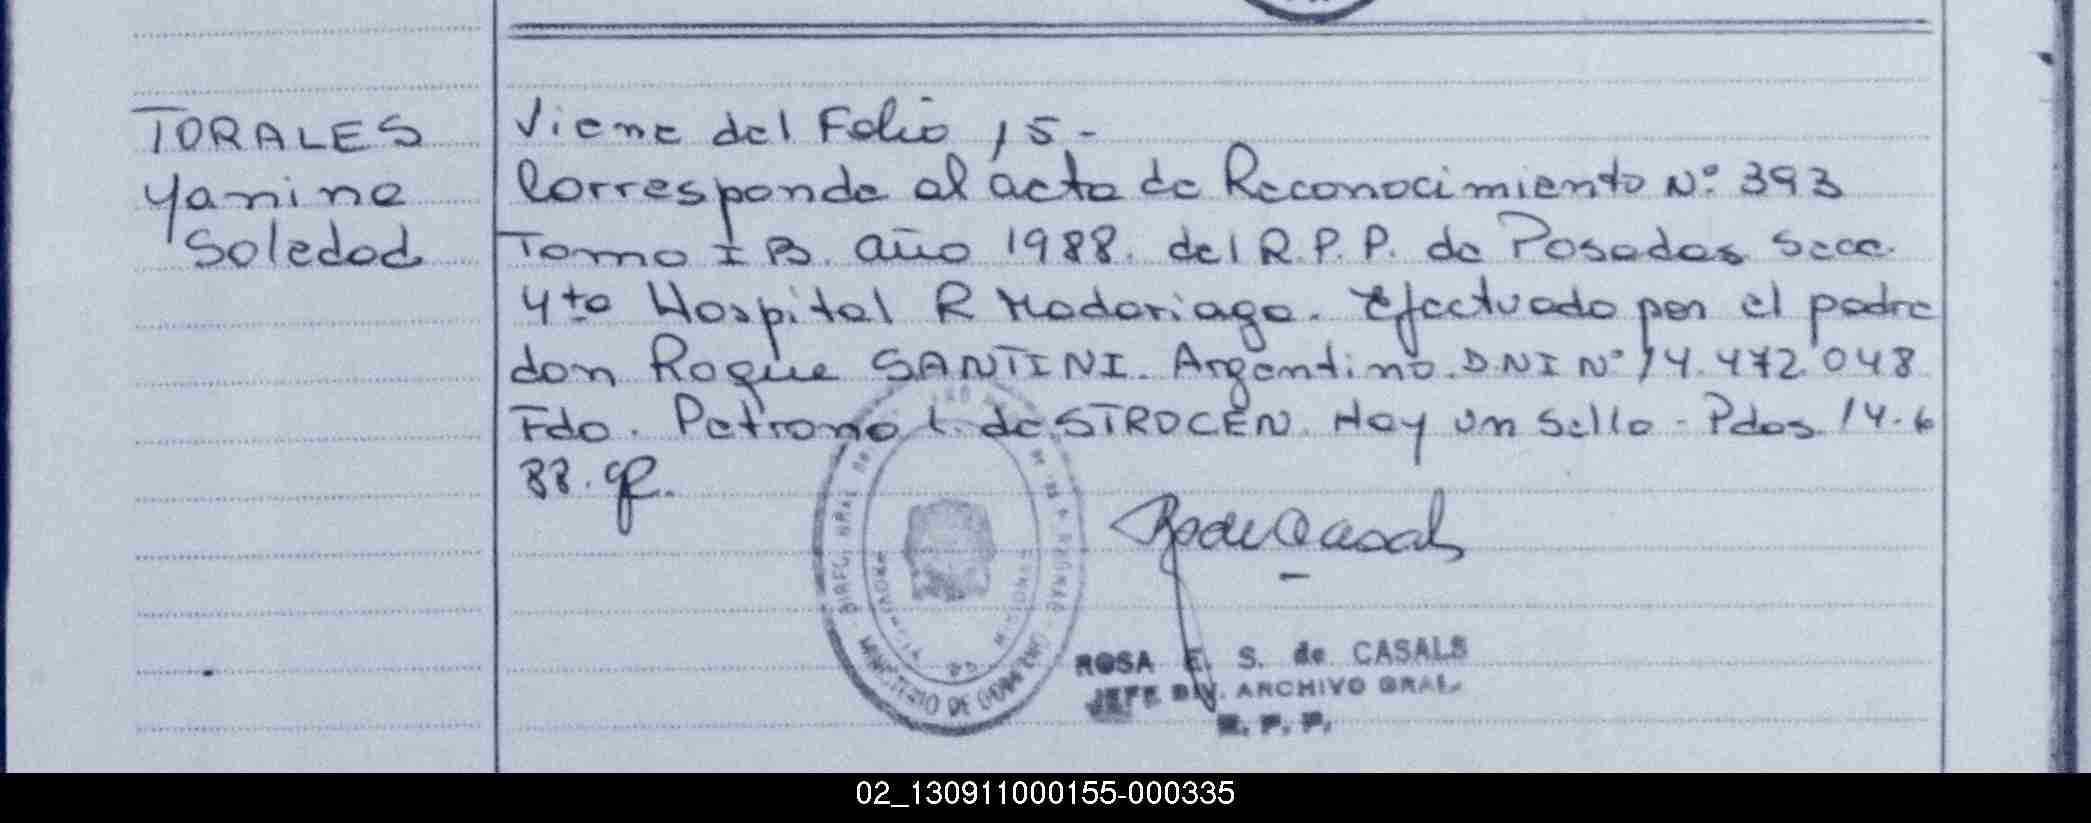 TORALES
Yanine
Soledad
Viene del Folio 15-
Corresponde al acta de Reconocimiento N° 393
Tomo I B. año 1988. del R.P.P. de Posadas Secc.
4ta Hospital R Madariaga. Efectuado por el padre
don Roque SANTINI. Argentino. DNI N° 14.472.048
Fdo. Petrona L. de STROCEN. Hay un sello - Pdas 14-6
88.
MINISTERIO DE GOBIERNO
MISIONES
ROSA E. S. de CASALS
JEFE DIV. ARCHIVO GRAL.
R. P. P.
02_130911000155-000335